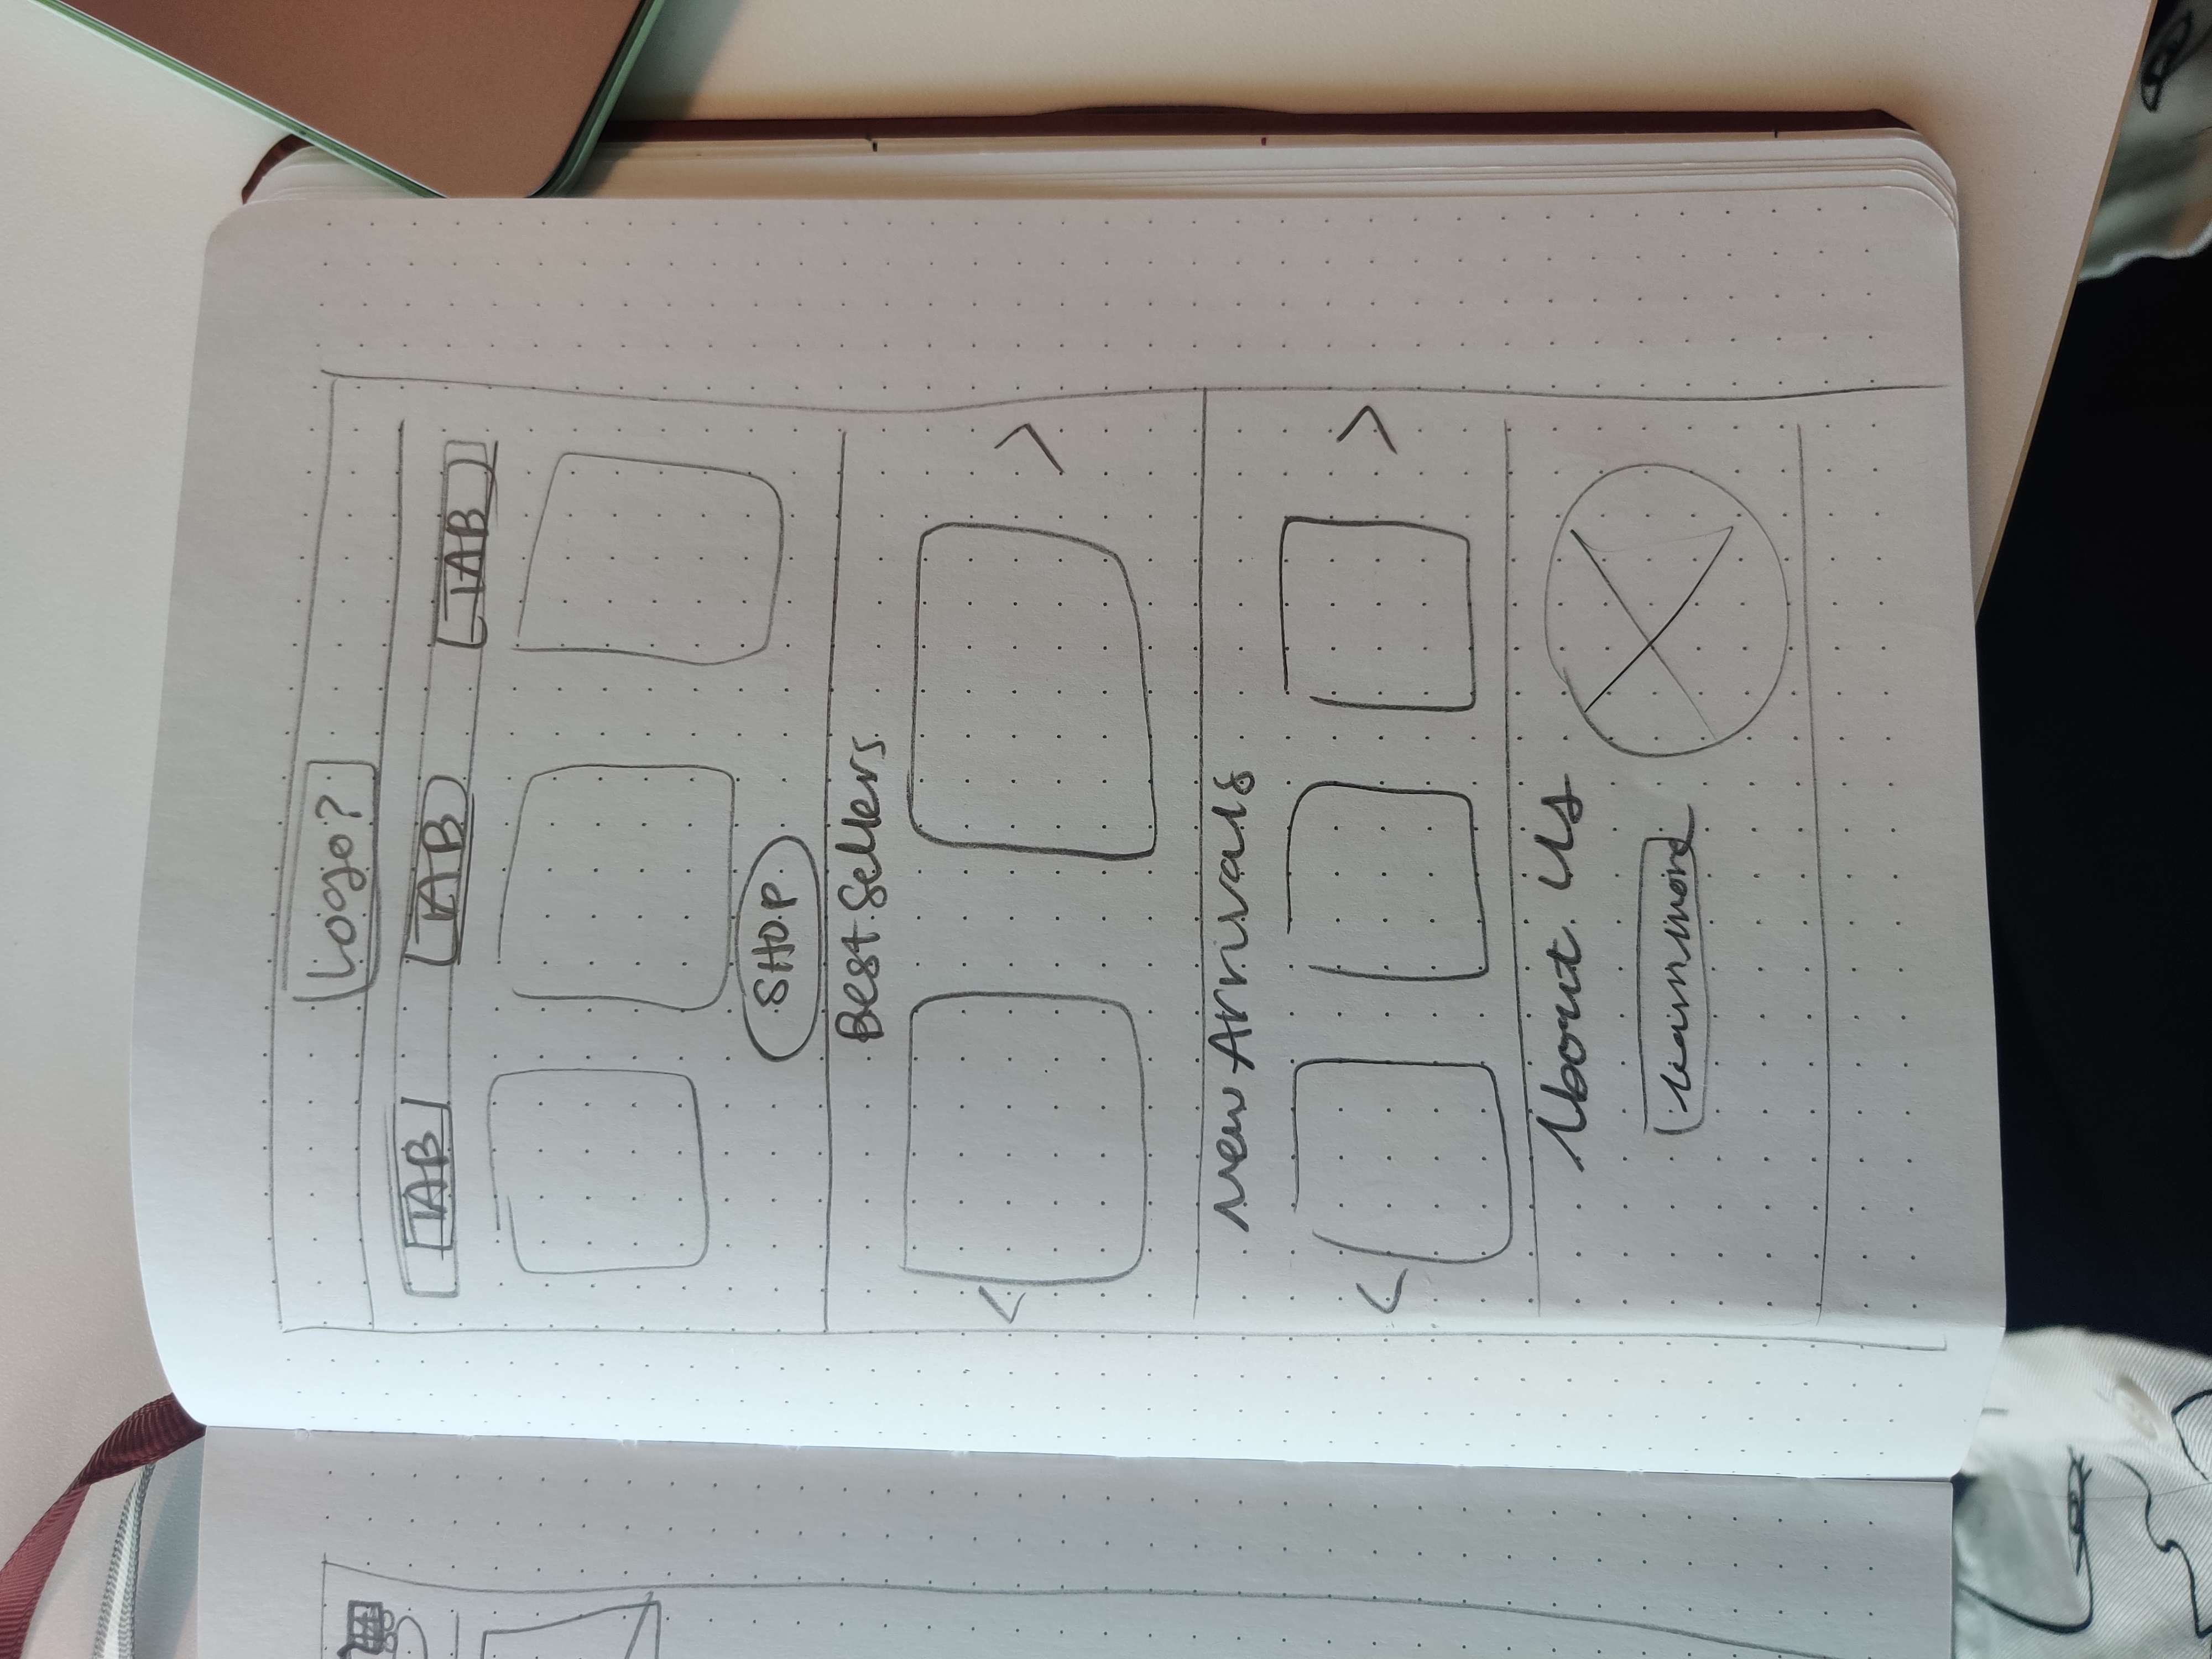 Logo?
TAB TAB TAB
SHOP
Best Sellers
New Arrivals
About Us
learn more